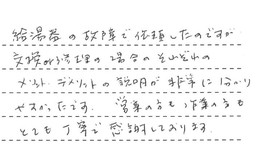 給湯器の故障で依頼したのですが
交換or修理の場合のそれぞれの
メリット、デメリットの説明が非常に分かり
やすかったです。営業の方も作業の方も
とても丁寧で感謝しております。